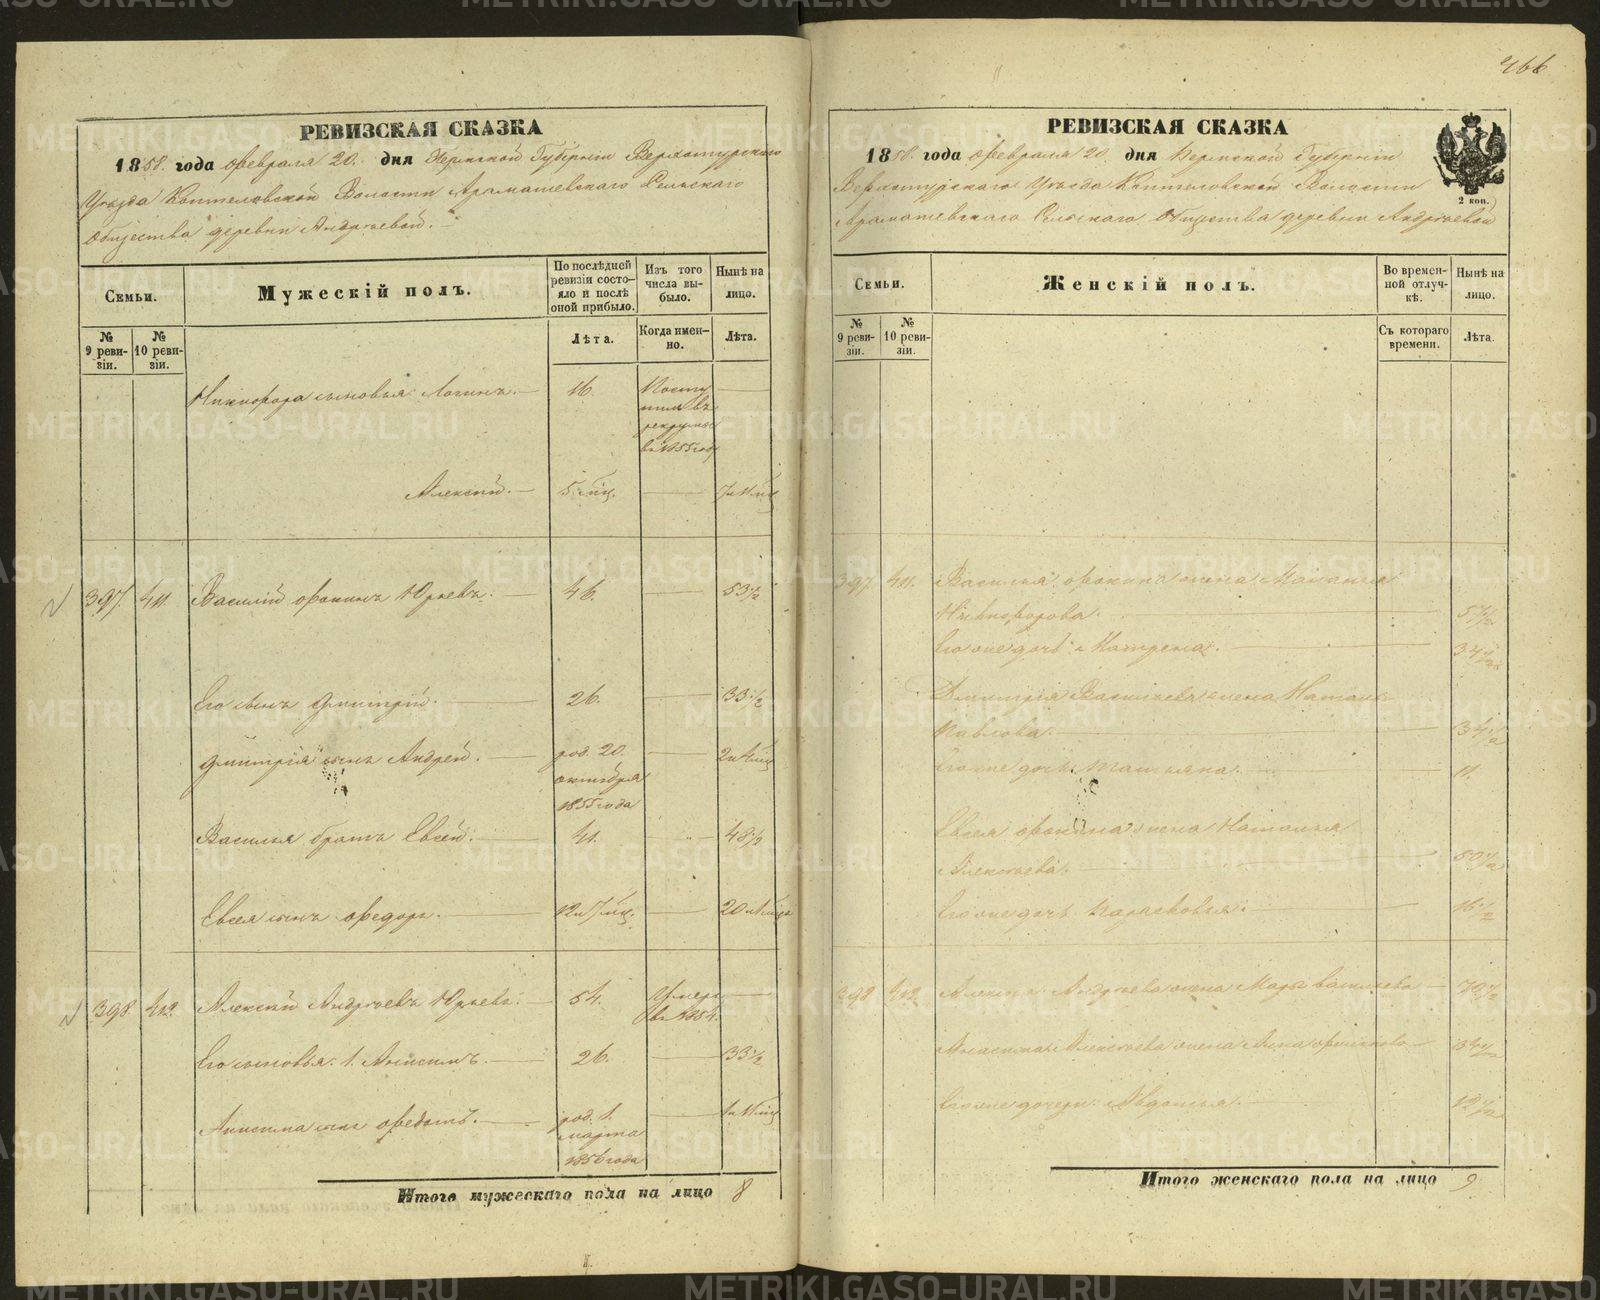 466
РЕВИЗСКАЯ СКАЗКА
1858. года февраля 20. дня Пермской Губерніи Верхотурского
Уезда Коптеловской Волости Арамашевского Сельского
общества деревни Андреевой.
Семьи.
Мужескій полъ.
По послѣдней ревизіи состояло и послѣ оной прибыло.
Изъ того числа выбыло.
Нынѣ на лицо.
№ 9 ревизіи.
№ 10 ревизіи.
Лѣта.
Когда именно.
Лѣта.
Никифора сыновья: Логинъ. 16. Посту
пилъ въ
рекруты
въ 1855 году
Алексѣй. 5 мѣц. 7 и
397. 411. Василій Фокинъ Юрьевъ. 46. 53 1/2
Его сынъ Дмитрій. 26. 33 1/2
Дмитрія сынъ Андрей. род. 20. 2 и 4 мѣц
октября
1855 года
Василья братъ Евсей. 41. 48 1/2
Евсея сынъ Федоръ. 12 и 7 мѣц. 20
398 412. Алексѣй Андреевъ Юрьевъ. 54. Умеръ
въ 1854.
Его сыновья: 1. Анисимъ. 26. 33 1/2
Анисима сынъ Федотъ. род. 1. 1 и 11 мѣц
марта
1856 года
Итого мужескаго пола на лицо 8
РЕВИЗСКАЯ СКАЗКА
1858. года февраля 20. дня Пермской Губерніи
Верхотурского Уезда Коптеловской Волости
Арамашевского Сельского общества деревни Андреевой
2 коп.
Семьи.
Женскій полъ.
Во временной отлучкѣ.
Нынѣ на лицо.
№ 9 ревизіи.
№ 10 ревизіи.
Съ котораго времени.
Лѣта.
397 411. Василья Фокина жена Маланья
Никифорова. 57 1/2
Его же дочь Матрена. 34 1/2
Дмитрія Васильева жена Наталья
Павлова. 34 1/2
Его же дочь Татьяна. 11.
Евсея Фокина жена Наталья
Алексѣева. 50 1/2
Его же дочь Парасковья. 16 1/2
398 412 Алексѣя Андреева жена Марья Васильева 70 1/2
Анисима Алексѣева жена Анна 34 1/2
Его же дочери: Авдотья. 12 1/2
Итого женскаго пола на лицо 9
METRIKI.GASO-URAL.RU